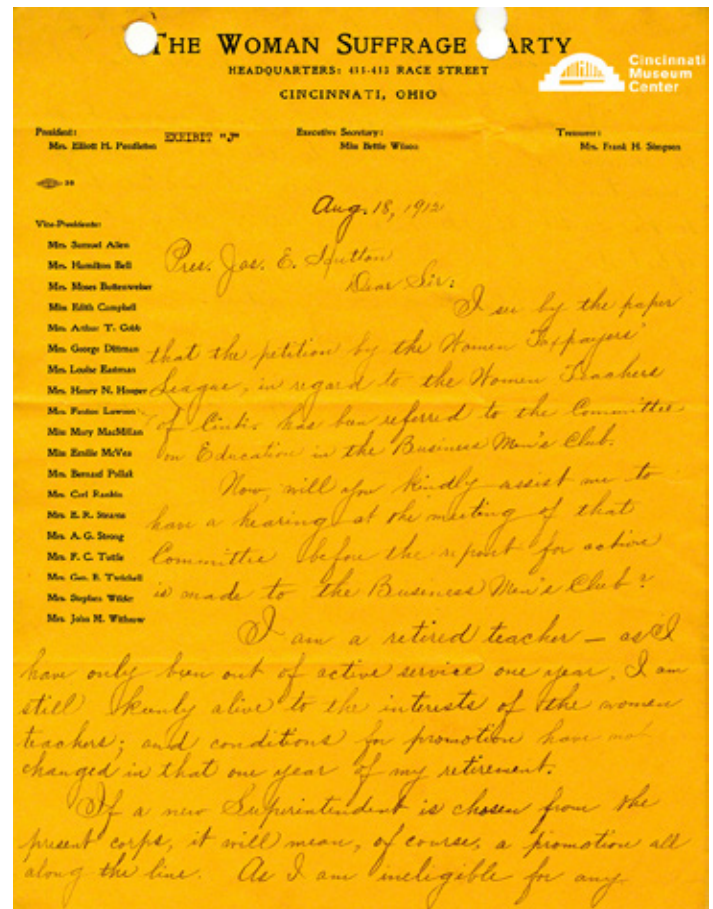 THE WOMAN SUFFRAGE PARTY
HEADQUARTERS: 411-413 RACE STREET
CINCINNATI, OHIO
Cincinnati
Museum
Center
President:
Mrs. Elliott H. Pendleton
EXHIBIT "J"
Executive Secretary:
Miss Bettie Wilson
Treasurer:
Mrs. Frank H. Simpson
38
Aug. 18, 1912
Vice-Presidents:
Mrs. Samuel Allen
Mrs. Hamilton Bell
Mrs. Moses Buttenweiser
Miss Edith Campbell
Mrs. Arthur T. Cobb
Mrs. George Dittman
Mrs. Louise Eastman
Mrs. Henry N. Hooper
Mrs. Fenton Lawson
Miss Mary MacMillan
Miss Emilie McVea
Mrs. Bernard Pollak
Mrs. Carl Rankin
Mrs. E. R. Stearns
Mrs. A. G. Strong
Mrs. F. C. Tuttle
Mrs. Geo. E. Twitchell
Mrs. Stephen Wilder
Mrs. John M. Withrow
Pres. Jas. E.
Dear Sir:
I see by the paper
that the petition by the Women Taxpayers'
League, in regard to the Women Teachers
of Cinti. has been referred to the Committee
on Education in the Business Men's Club.
Now, will you kindly assist me to
have a hearing at the meeting of that
Committee before the report for action
is made to the Business Men's Club?
I am a retired teacher — as I
have only been out of active service one year, I am
still keenly alive to the interests of the women
teachers; and conditions for promotion have not
changed in that one year of my retirement.
If a new Superintendent is chosen from the
present corps, it will mean, of course, a promotion all
along the line. As I am ineligible for any